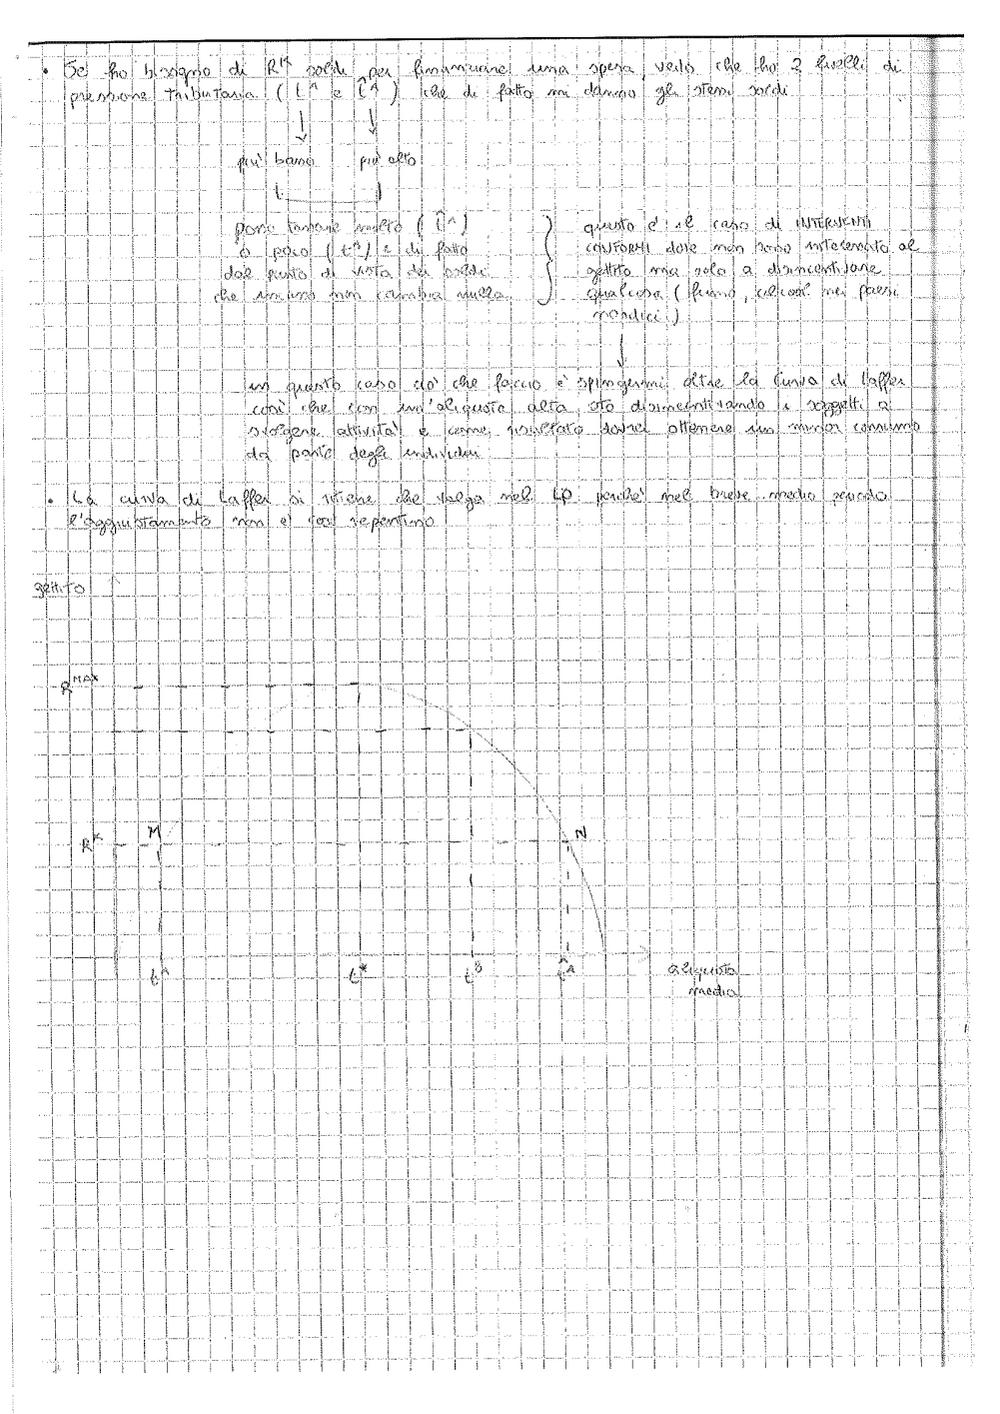 • Se ho bisogno di R^K soldi per finanziare una spesa, vedo che ho 2 livelli di
pressione tributaria (t^A e t̂^A) che di fatto mi danno gli stessi soldi
più basso più alto
posso tassare molto (t̂^A)
o poco (t^A) e di fatto
dal punto di vista dei soldi
che incasso non cambia nulla
questo è il caso di INTERVENTI
CONFORMI dove non sono interessato al
gettito ma solo a disincentivare
qualcosa (fumo, alcool nei paesi
nordici)
in questo caso ciò che faccio è spingermi oltre la curva di Laffer
così che con un'aliquota alta sto disincentivando i soggetti a
svolgere attività e come risultato dovrei ottenere un minor consumo
da parte degli individui
• La curva di Laffer si ritiene che valga nel LP perché nel breve medio periodo
l'aggiustamento non è così repentino
gettito
R^MAX
R^K M N
t^A t* t^B t̂^A aliquota
media